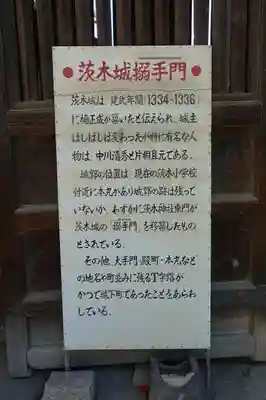 ●茨木城搦手門●
茨木城は 建武年間(1334~1336)
に楠正成が築いたと伝えられ、城主
はしばしば変わったが特に有名な人
物は、中川清秀と片桐且元である。
城郭の位置は 現在の茨木小学校
付近に本丸があり城郭の跡は残って
いないが、わずかに茨木神社東門が
茨木城の「搦手門」を移築したもの
とされている。
その他、大手門、殿町・本丸など
の地名や町並みに残るT字路が
かつて城下町であったことをあらわ
している。